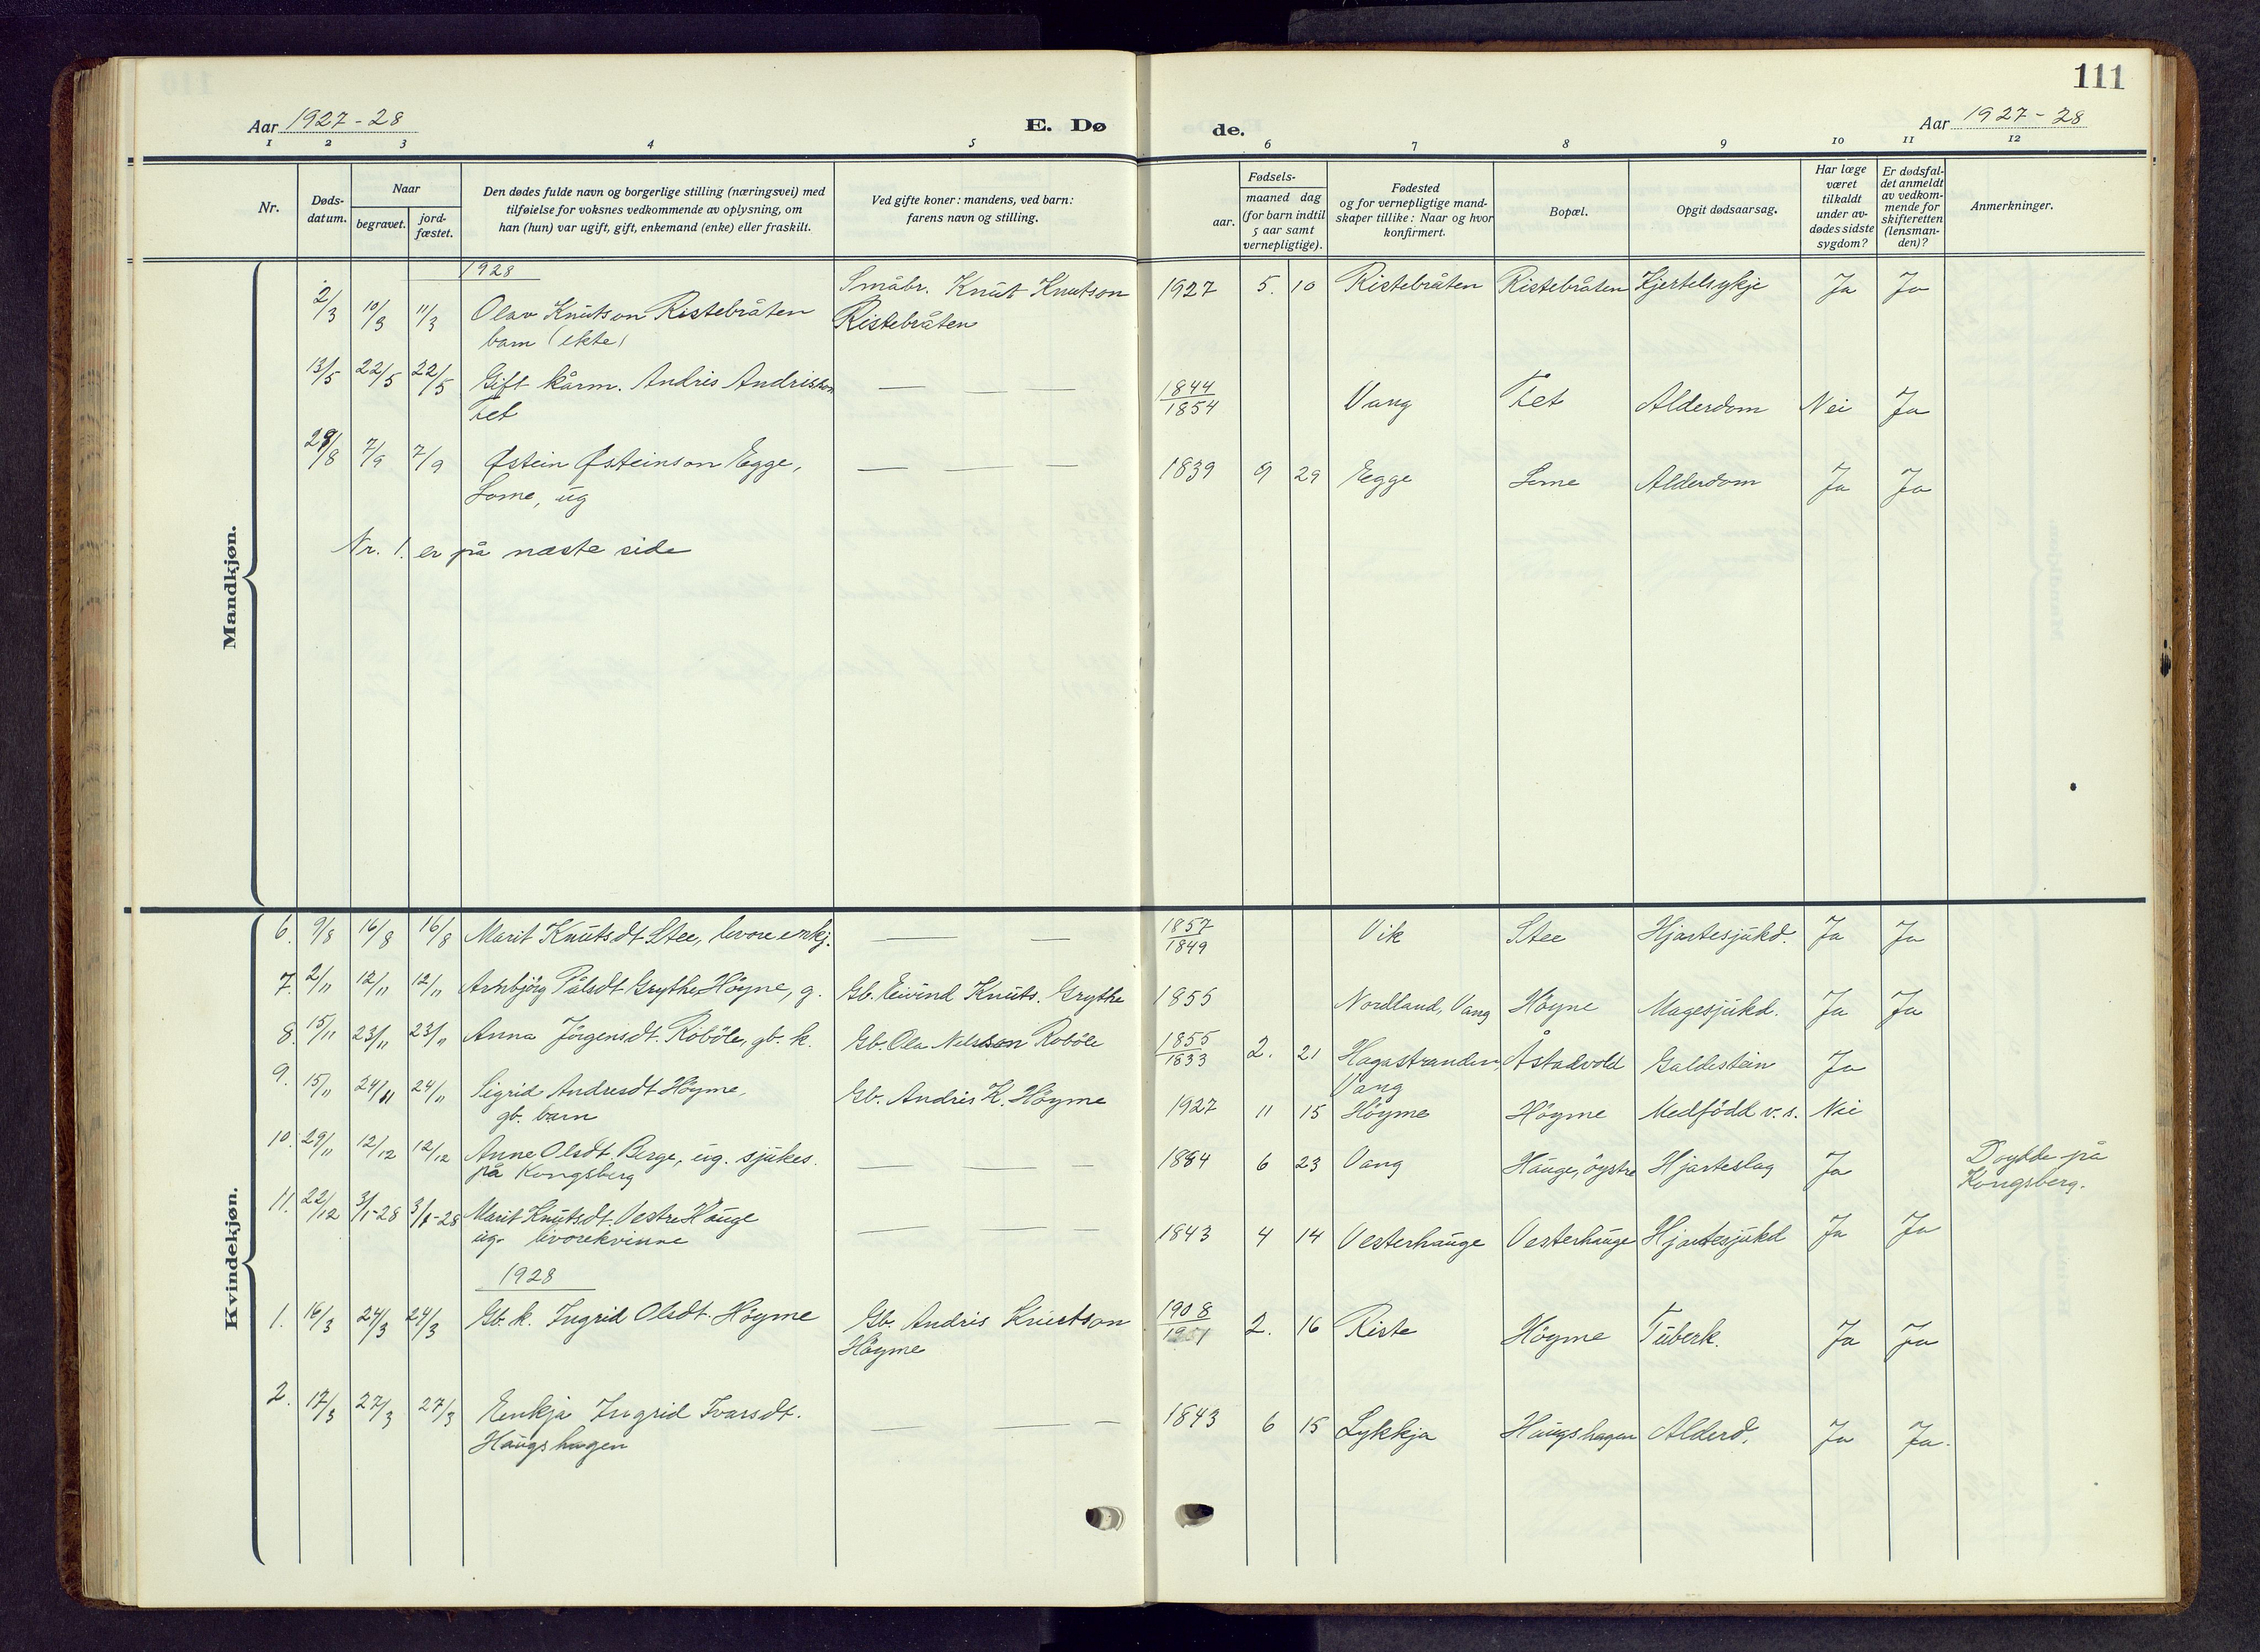 111
Aar 1927-28
E. Dø
de.
Aar 1927-28
1 2 3 4 5 6 7 8 9 10 11 12
Nr.
Døds-
datum.
Naar
begravet.
jord-
fæstet.
Den dødes fulde navn og borgerlige stilling (næringsvei) med
tilføielse for voksnes vedkommende av oplysning, om
han (hun) var ugift, gift, enkemand (enke) eller fraskilt.
Ved gifte koner: mandens, ved barn:
farens navn og stilling.
Fødsels-
aar.
maaned dag
(for barn indtil
5 aar samt
vernepligtige).
Fødested
og for vernepligtige mand-
skaper tillike: Naar og hvor
konfirmert.
Bopæl.
Opgit dødsaarsag.
Har læge
været
tilkaldt
under av-
dødes sidste
sygdom?
Er dødsfal-
det anmeldt
av vedkom-
mende for
skifteretten
(lensman-
den)?
Anmerkninger.
Mandkjøn.
1928
2/3 10/3 11/3 Olav Knutson Ristebråten Småbr. Knut Knutson 1927 5. 10 Ristebråten Ristebråten Kjertelsykje Ja Ja
barn (ekte) Ristebråten
13/5 22/5 22/5 Gift kårm. Andris Andrisson — — — 1844/1854 Vang Tet Alderdom Nei Ja
Tet
29/8 7/9 7/9 Østein Østeinson Egge, — — — 1839 9 29 Egge Lome Alderdom Ja Ja
Lome, ug
Nr. 1. er på næste side
Kvindekjøn.
6. 9/8 16/8 16/8 Marit Knutsdt Stee, livore enkj. — — 1857/1849 Vik Stee Hjartesjukd. Ja Ja
7. 2/11 12/11 12/11 Arnbjörg Pålsdt Grythe Höyne, g. Gb. Eivind Knuts. Grythe 1855 Nordland, Vang Höyne Magesjukd. Ja Ja
8. 15/11 23/11 23/11 Anna Jörgensdt. Roböle, gb. k. Gb. Ola Nelsson Roböle 1855/1833 2. 21 Hagastranden, Åstadvold Galdestein Ja
Vang
9. 15/11 24/11 24/11 Sigrid Andresdt Höyme, Gb. Andris K. Höyme 1927 11 15 Höyme Höyme Medfödd v. s. Nei
gb. barn
10. 29/11 12/12 12/12 Anne Olsdt. Berge, ug. sjukes. — — — 1884 6 23 Vang Hauge, öystre Hjarteslag Ja Doydde på
på Kongsberg Kongsberg.
11. 22/12 3/1-28 3/1-28 Marit Knutsdt. Vestre Hauge — — — 1843 4 14 Vesterhauge Vesterhauge Hjartesjukd Ja Ja
ug. livorekvinne
1928
1. 16/3 24/3 24/3 Gb. k. Ingrid Olsdt. Höyme Gb. Andris Knutson 1908 2. 16 Riste Höyme Tuberk. Ja Ja
Höyme
2. 17/3 27/3 27/3 Enkja Ingrid Ivarsdt. — — — 1843 6 15 Lykkja Haugshagen Alderd. Ja Ja.
Haugshagen